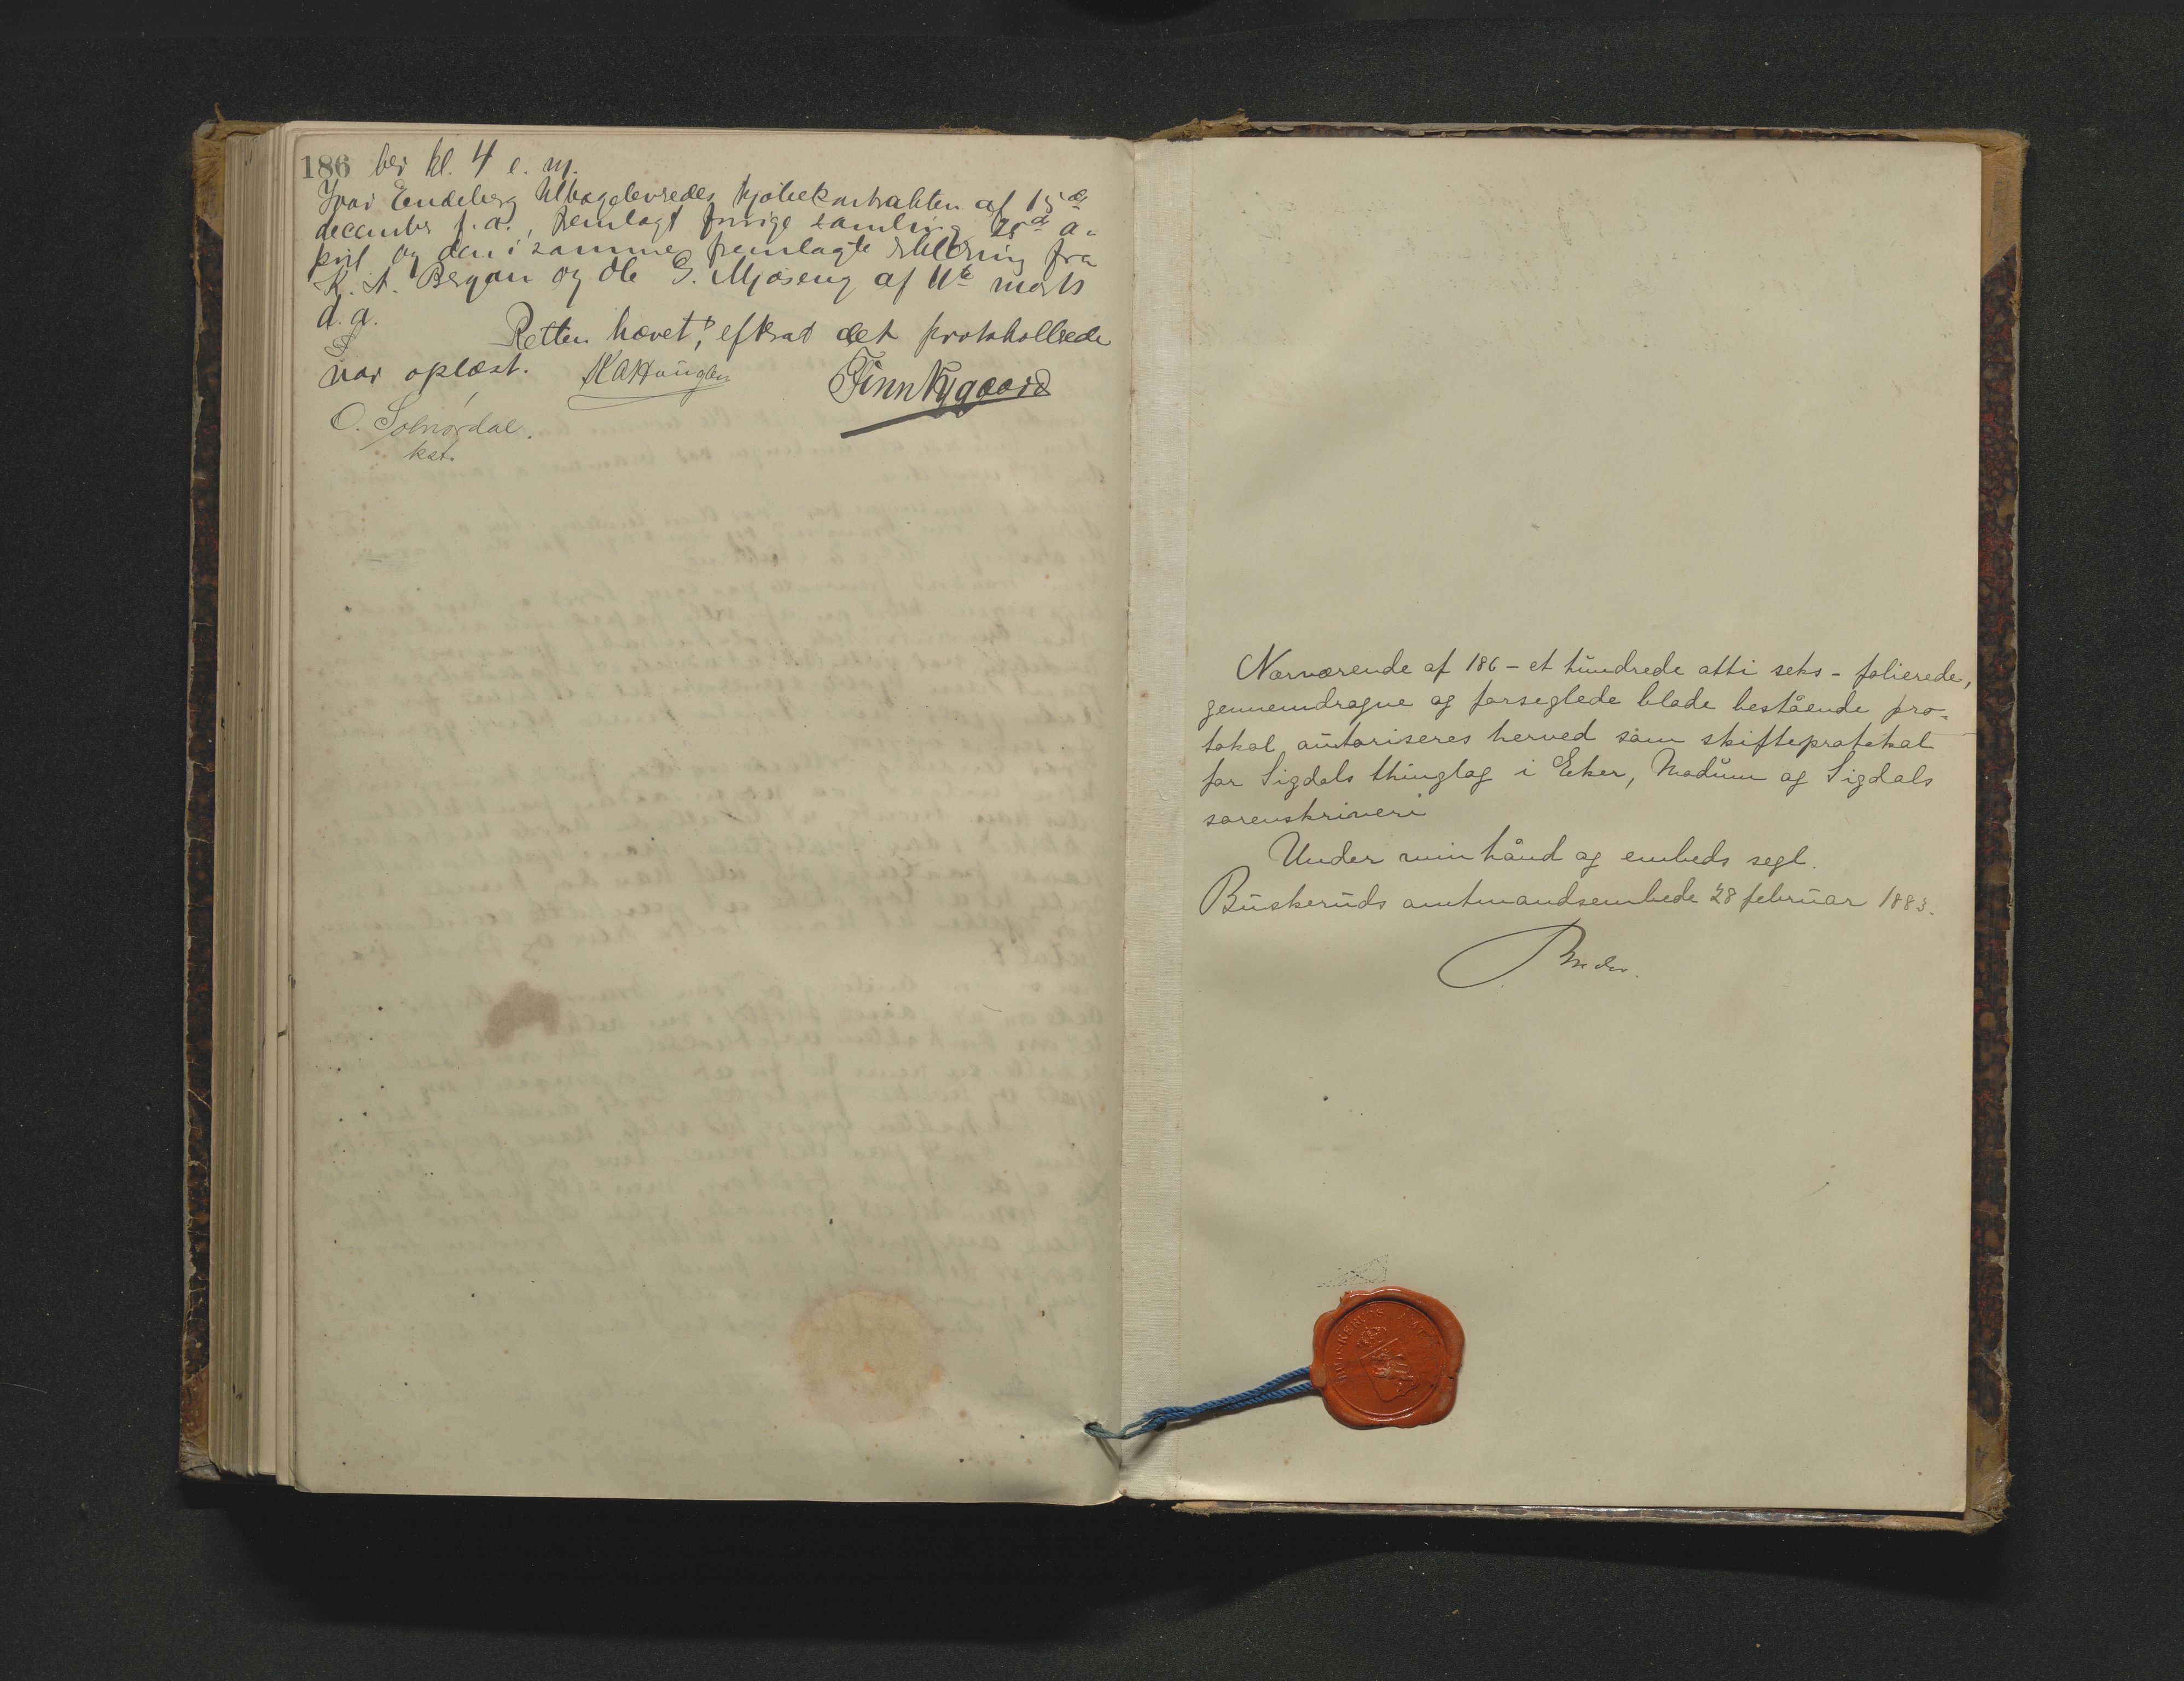 186 ber kl. 4 e. m.
Ivar Endeberg tilbageleveredes kjøbekontrakten af 15de
december f. a., fremlagt forrige samling 25de a-
pril og den i samme fremlagte erklæring fra
K. A. Bergan og Ole G. Mjøseng af 11te marts
d. a.
Retten hævet, efterat det protokollerede
var oplæst.
Finn Nygaard
O. Solnørdal.
kst.
Nærværende af 186 - et hundrede otti seks - folierede,
gennemdragne og forseglede blade bestående pro-
tokol autoriseres herved som skifteprotokol
for Sigdals thinglag i Eker, Modum og Sigdals
sorenskriveri
Under min hånd og embeds segl.
Buskeruds amtmandsembede 28 februar 1883.
BUSKERUDS AMT